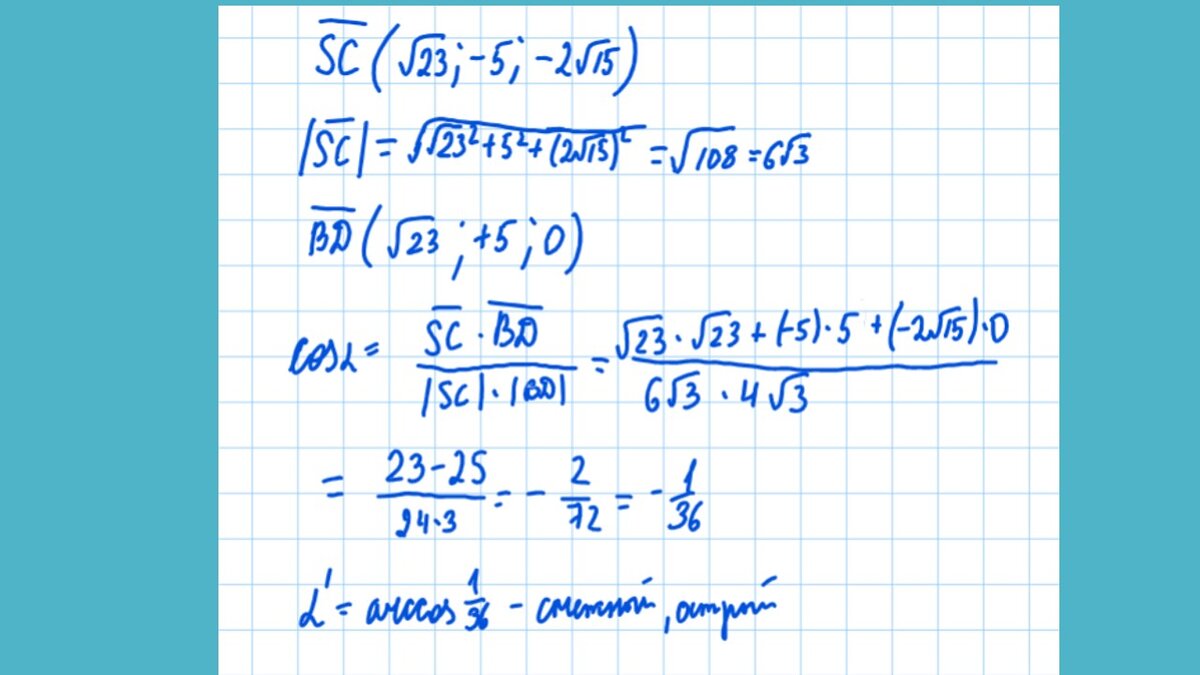 SC (√23; -5; -2√15)
|SC| = √(√23² + 5² + (2√15)²) = √108 = 6√3
BD (√23; +5; 0)
cosα = (SC · BD) / (|SC| · |BD|) = (√23 · √23 + (-5) · 5 + (-2√15) · 0) / (6√3 · 4√3)
= (23-25) / (24·3) = - 2/72 = - 1/36
α' = arccos 1/36 - смежный, острый